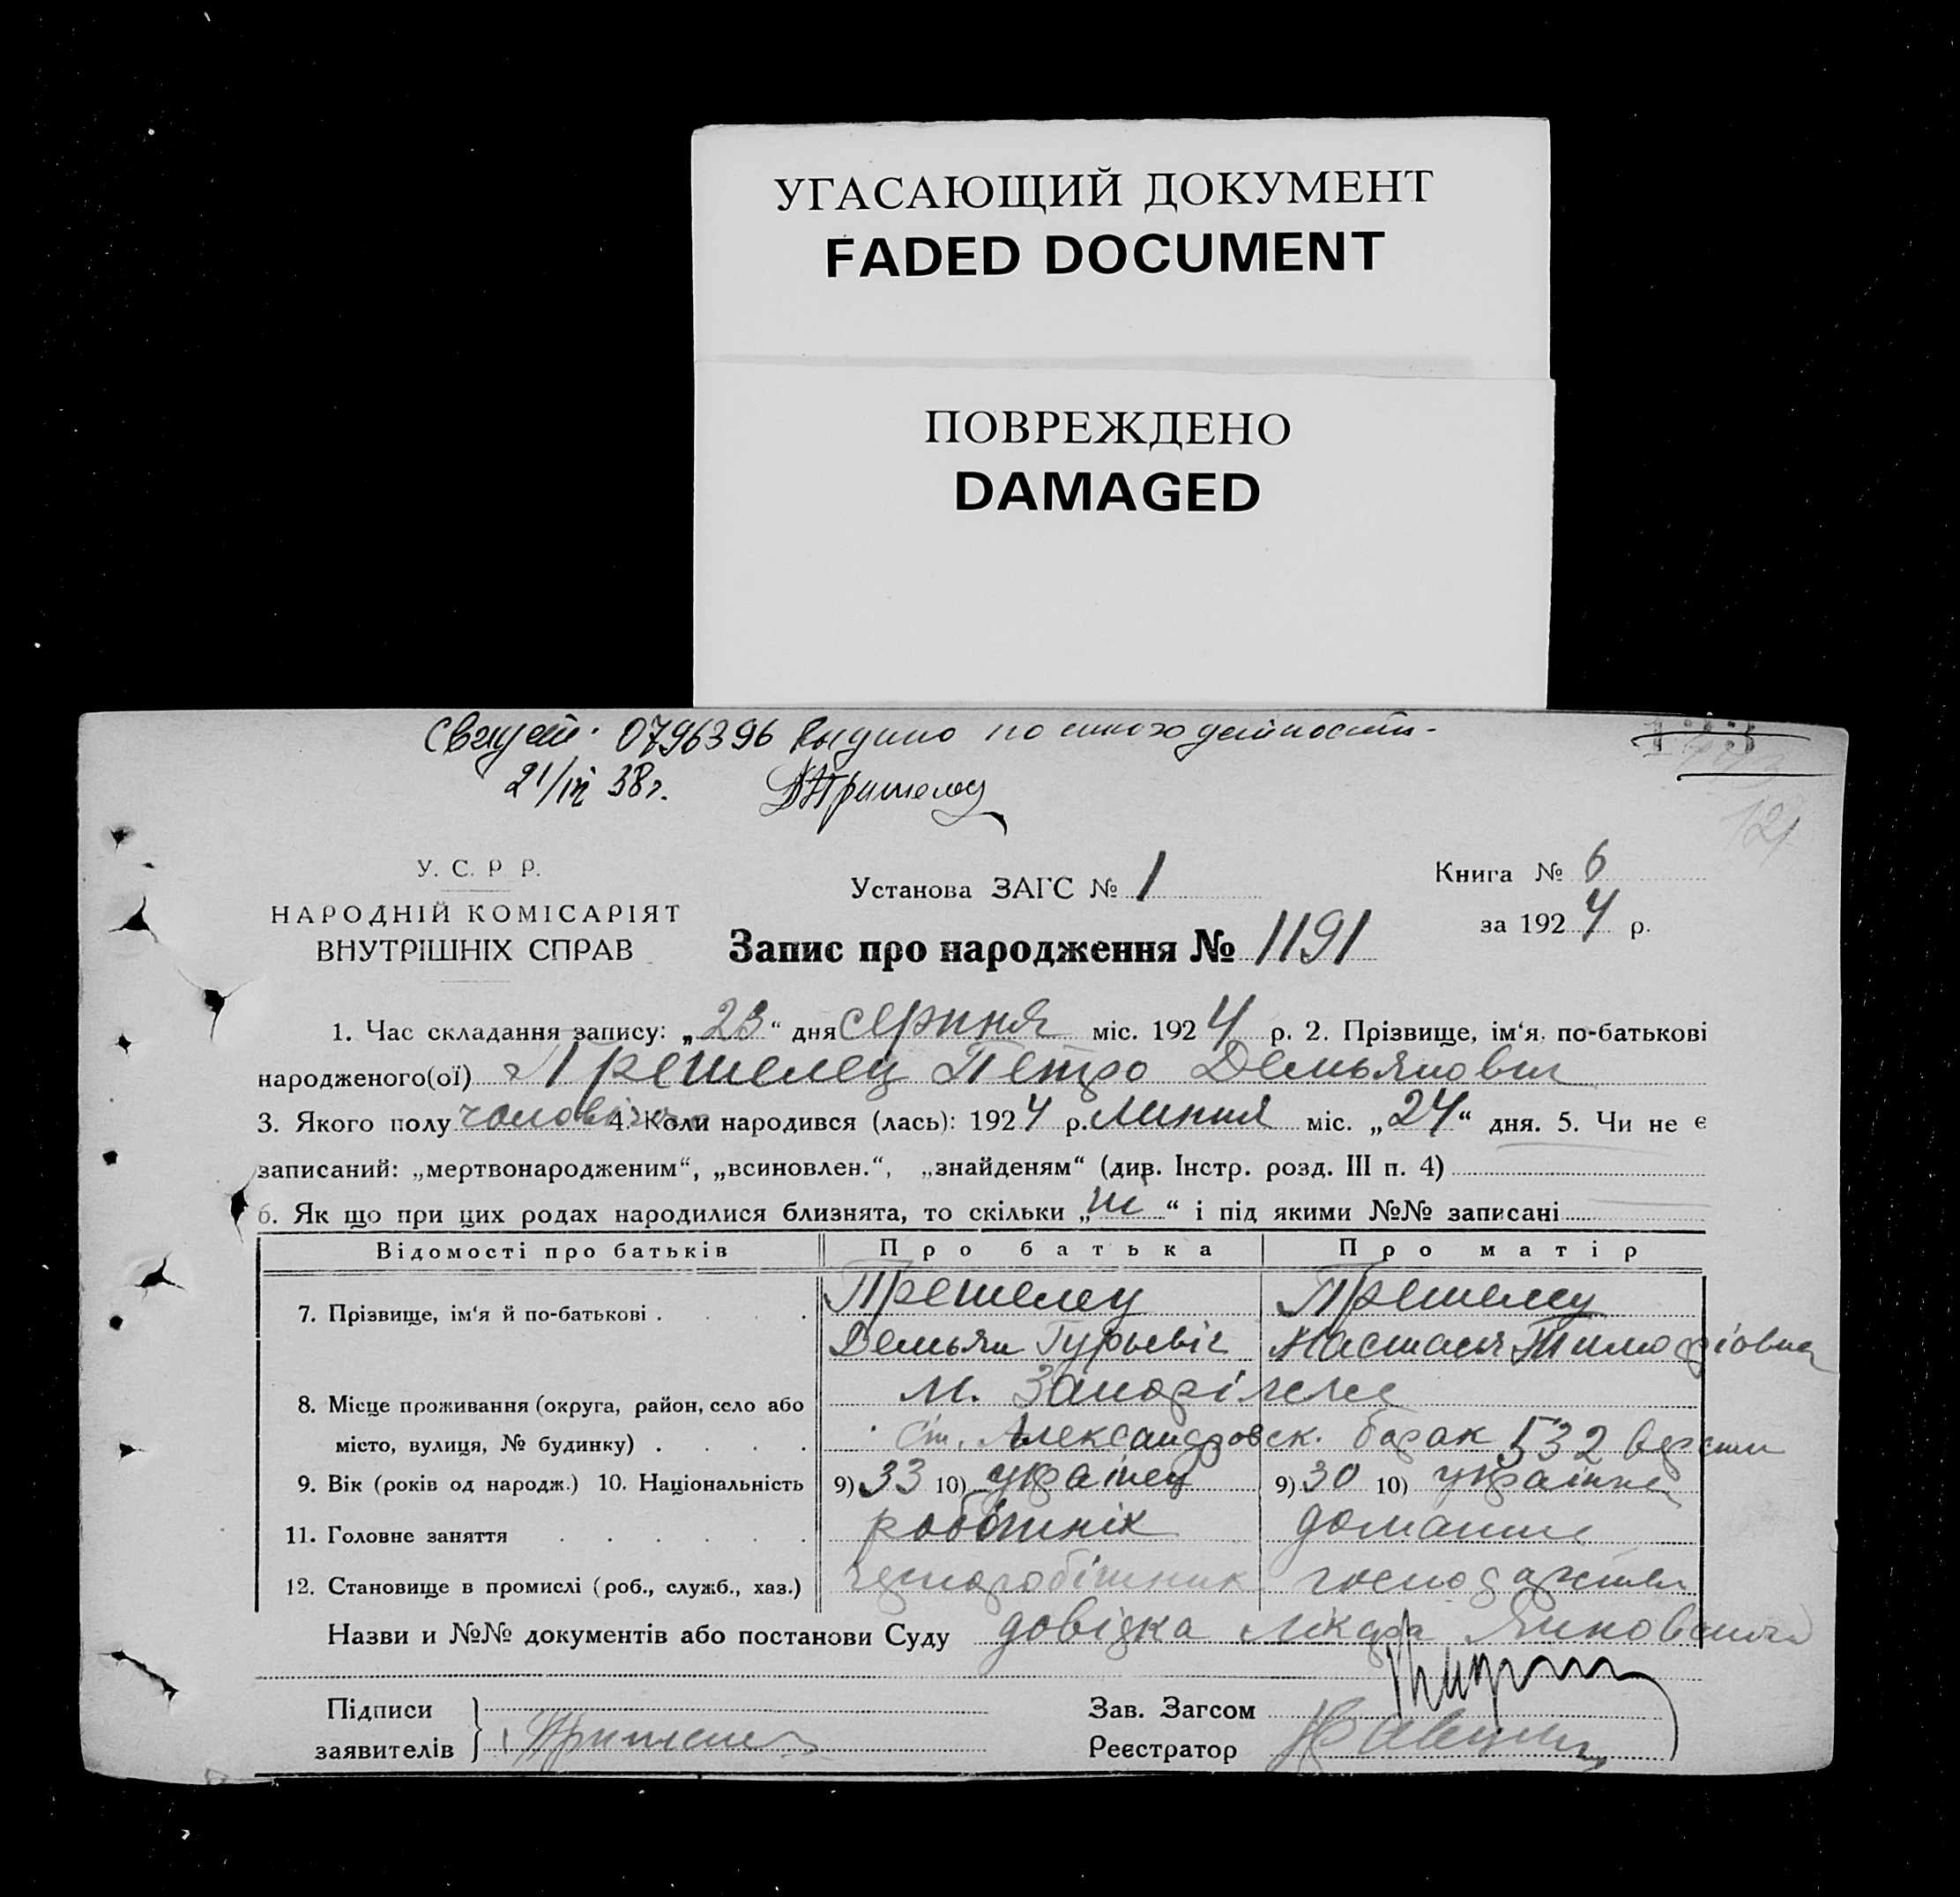 УГАСАЮЩИЙ ДОКУМЕНТ
FADED DOCUMENT
ПОВРЕЖДЕНО
DAMAGED
0796396 выдано по
21/ 38 г.
У. С. Р Р.
НАРОДНІЙ КОМІСАРІЯТ
ВНУТРІШНІХ СПРАВ
Установа ЗАГС № 1
Книга № 6
за 1924 р.
Запис про народження № 1191
1. Час складання запису: „23“ дня серпня міс. 1924 р. 2. Прізвище, ім‘я, по-батькові
народженого(ої) Прешелец Петро Демьянович
3. Якого полу чоловічого 4. Коли народився (лась): 1924 р. липня міс. „24“ дня. 5. Чи не є
записаний: „мертвонародженим“, „всиновлен.“, „знайденям“ (див. Інстр. розд. III п. 4)
6. Як що при цих родах народилися близнята, то скільки „ “ і під якими №№ записані
Відомості про батьків Про батька Про матір
7. Прізвище, ім‘я й по-батькові . . . . Прешелец Прешелец
Демьян Гурьевіч Настасья Тимофіовна
8. Місце проживання (округа, район, село або м. Запоріжже
місто, вулиця, № будинку) . . . . ст. Александровск. барак 532 версти
9. Вік (років од народж.) 10. Національність 9) 33 10) українец 9) 30 10) українка
11. Головне заняття . . . . . . робітнік домашнє
12. Становище в промислі (роб., служб., хаз.) чорноробітник господарство
Назви и №№ документів або постанови Суду довідка лікаря
Підписи
заявителів
Зав. Загсом
Реєстратор